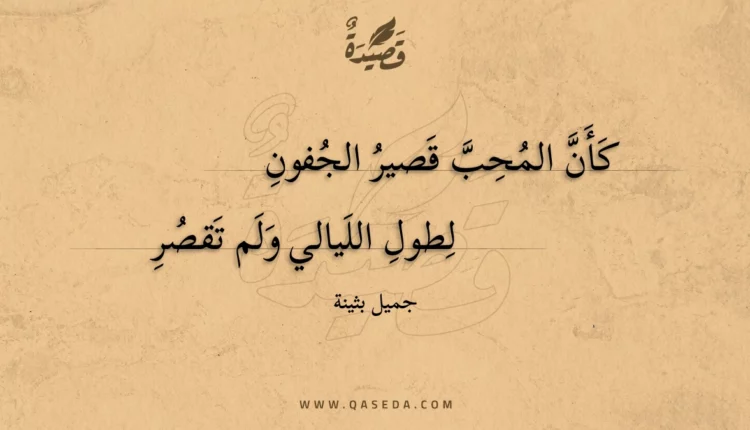 قَصِيْدَةٌ
كَأَنَّ المُحِبَّ قَصيرُ الجُفونِ
لِطولِ اللَيالي وَلَم تَقصُرِ
جميل بثينة
WWW.QASEDA.COM